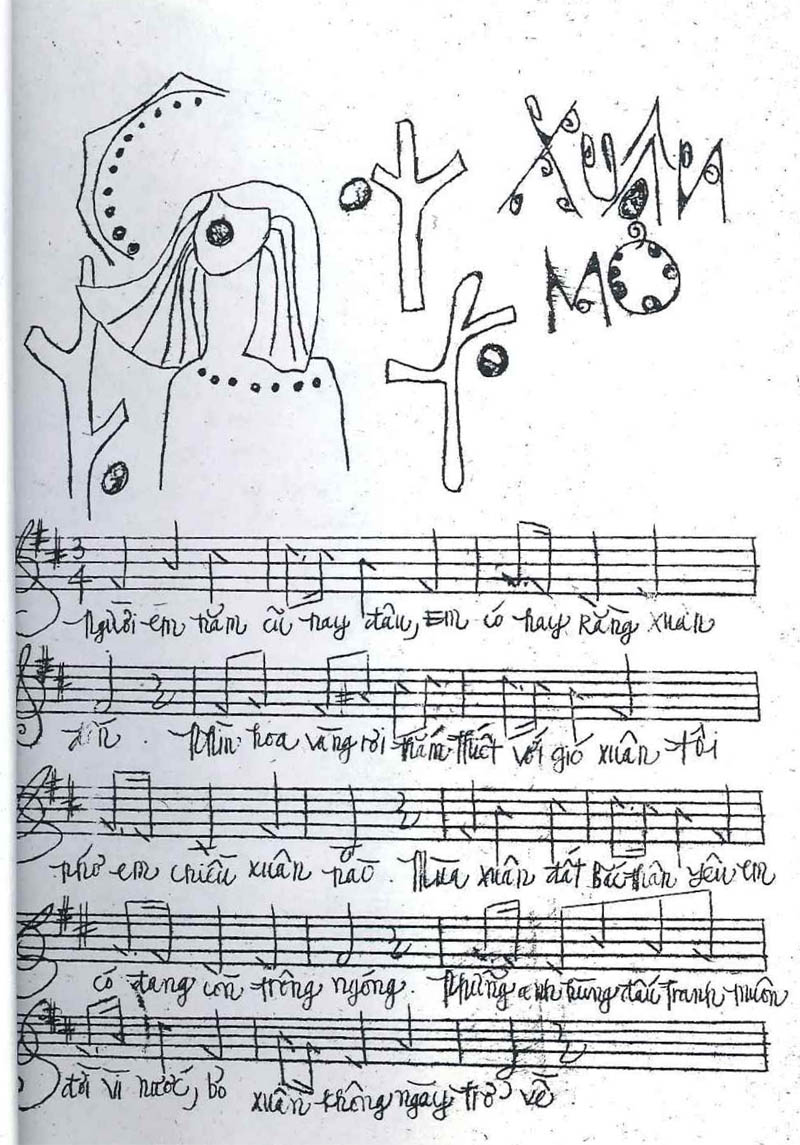 XUÂN
MƠ
3
4
Người em năm cũ nay đâu, Em có hay rằng xuân
đến. Nhìn hoa vàng rơi thắm thiết với gió xuân tôi
nhớ em chiều xuân nào. Mùa xuân đất Bắc thân yêu em
có đang còn trông ngóng. Những anh hùng đấu tranh muôn
đời vì nước, bỏ xuân không ngày trở về